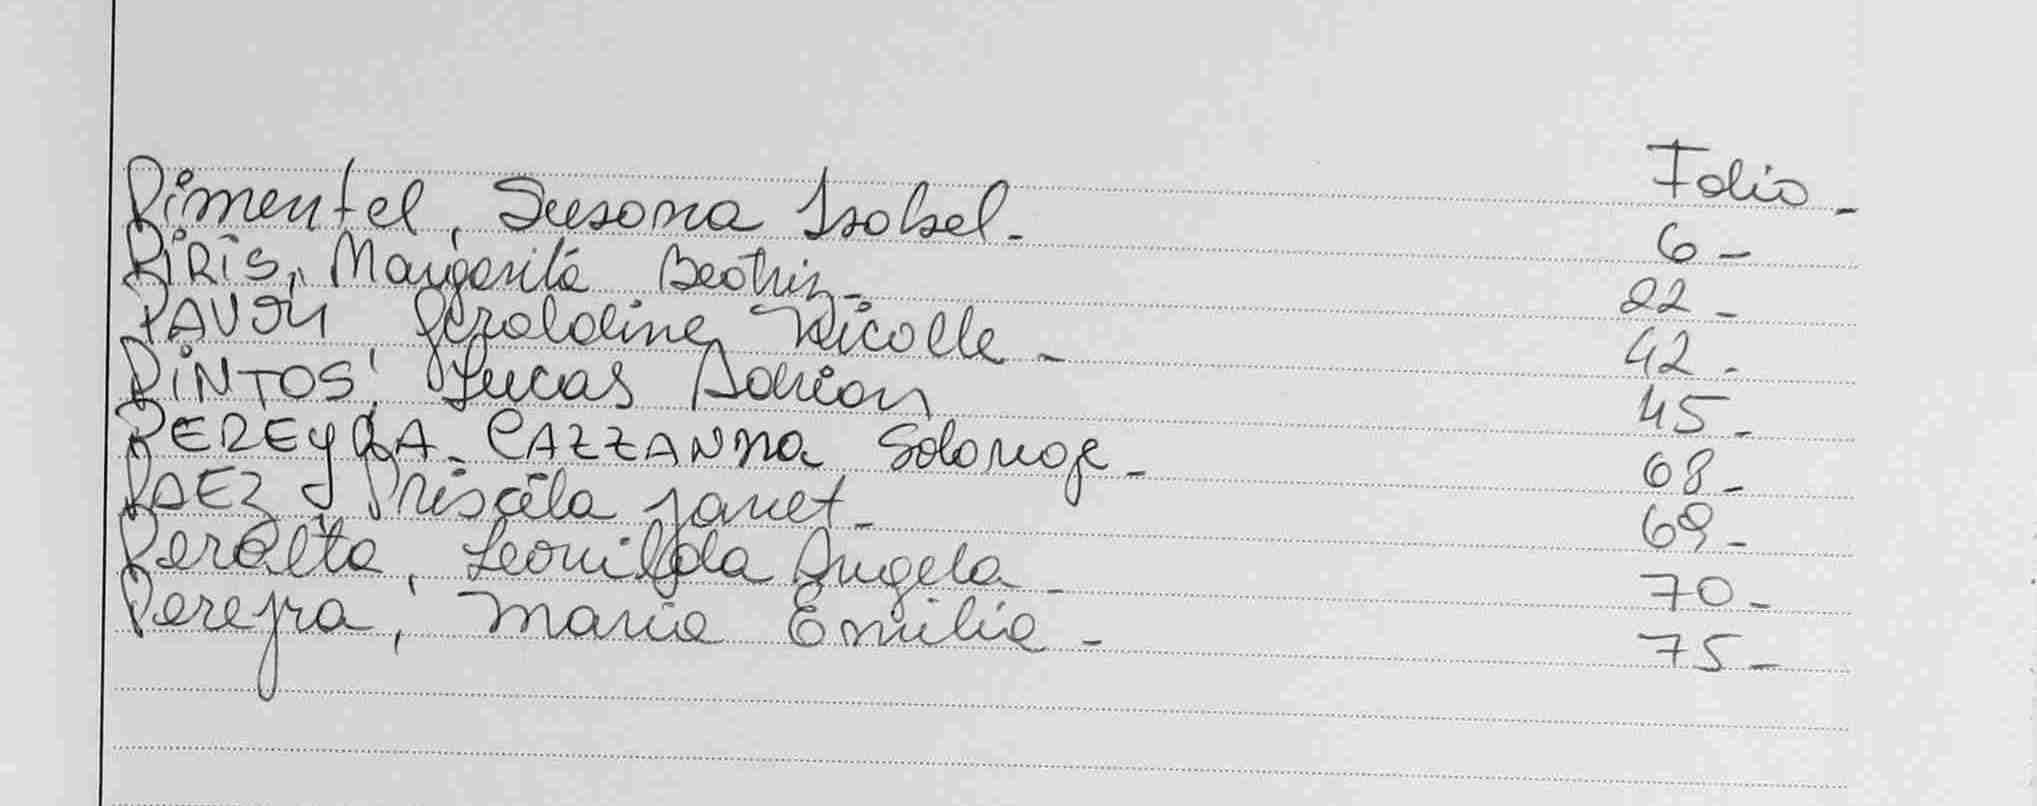 Folio-
Pimentel, Susana Isabel- 6-
PiRiS, Margarita Beatriz- 22-
PAVON Geraldine Nicolle- 42-
PiNTOS, Lucas Adrian 45-
PEREYRA- CAZZANNna Solange- 68-
PAEZ, Priscila Janet- 69-
Peralta, Leonilda Angela- 70-
Pereyra, Maria Emilia- 75-